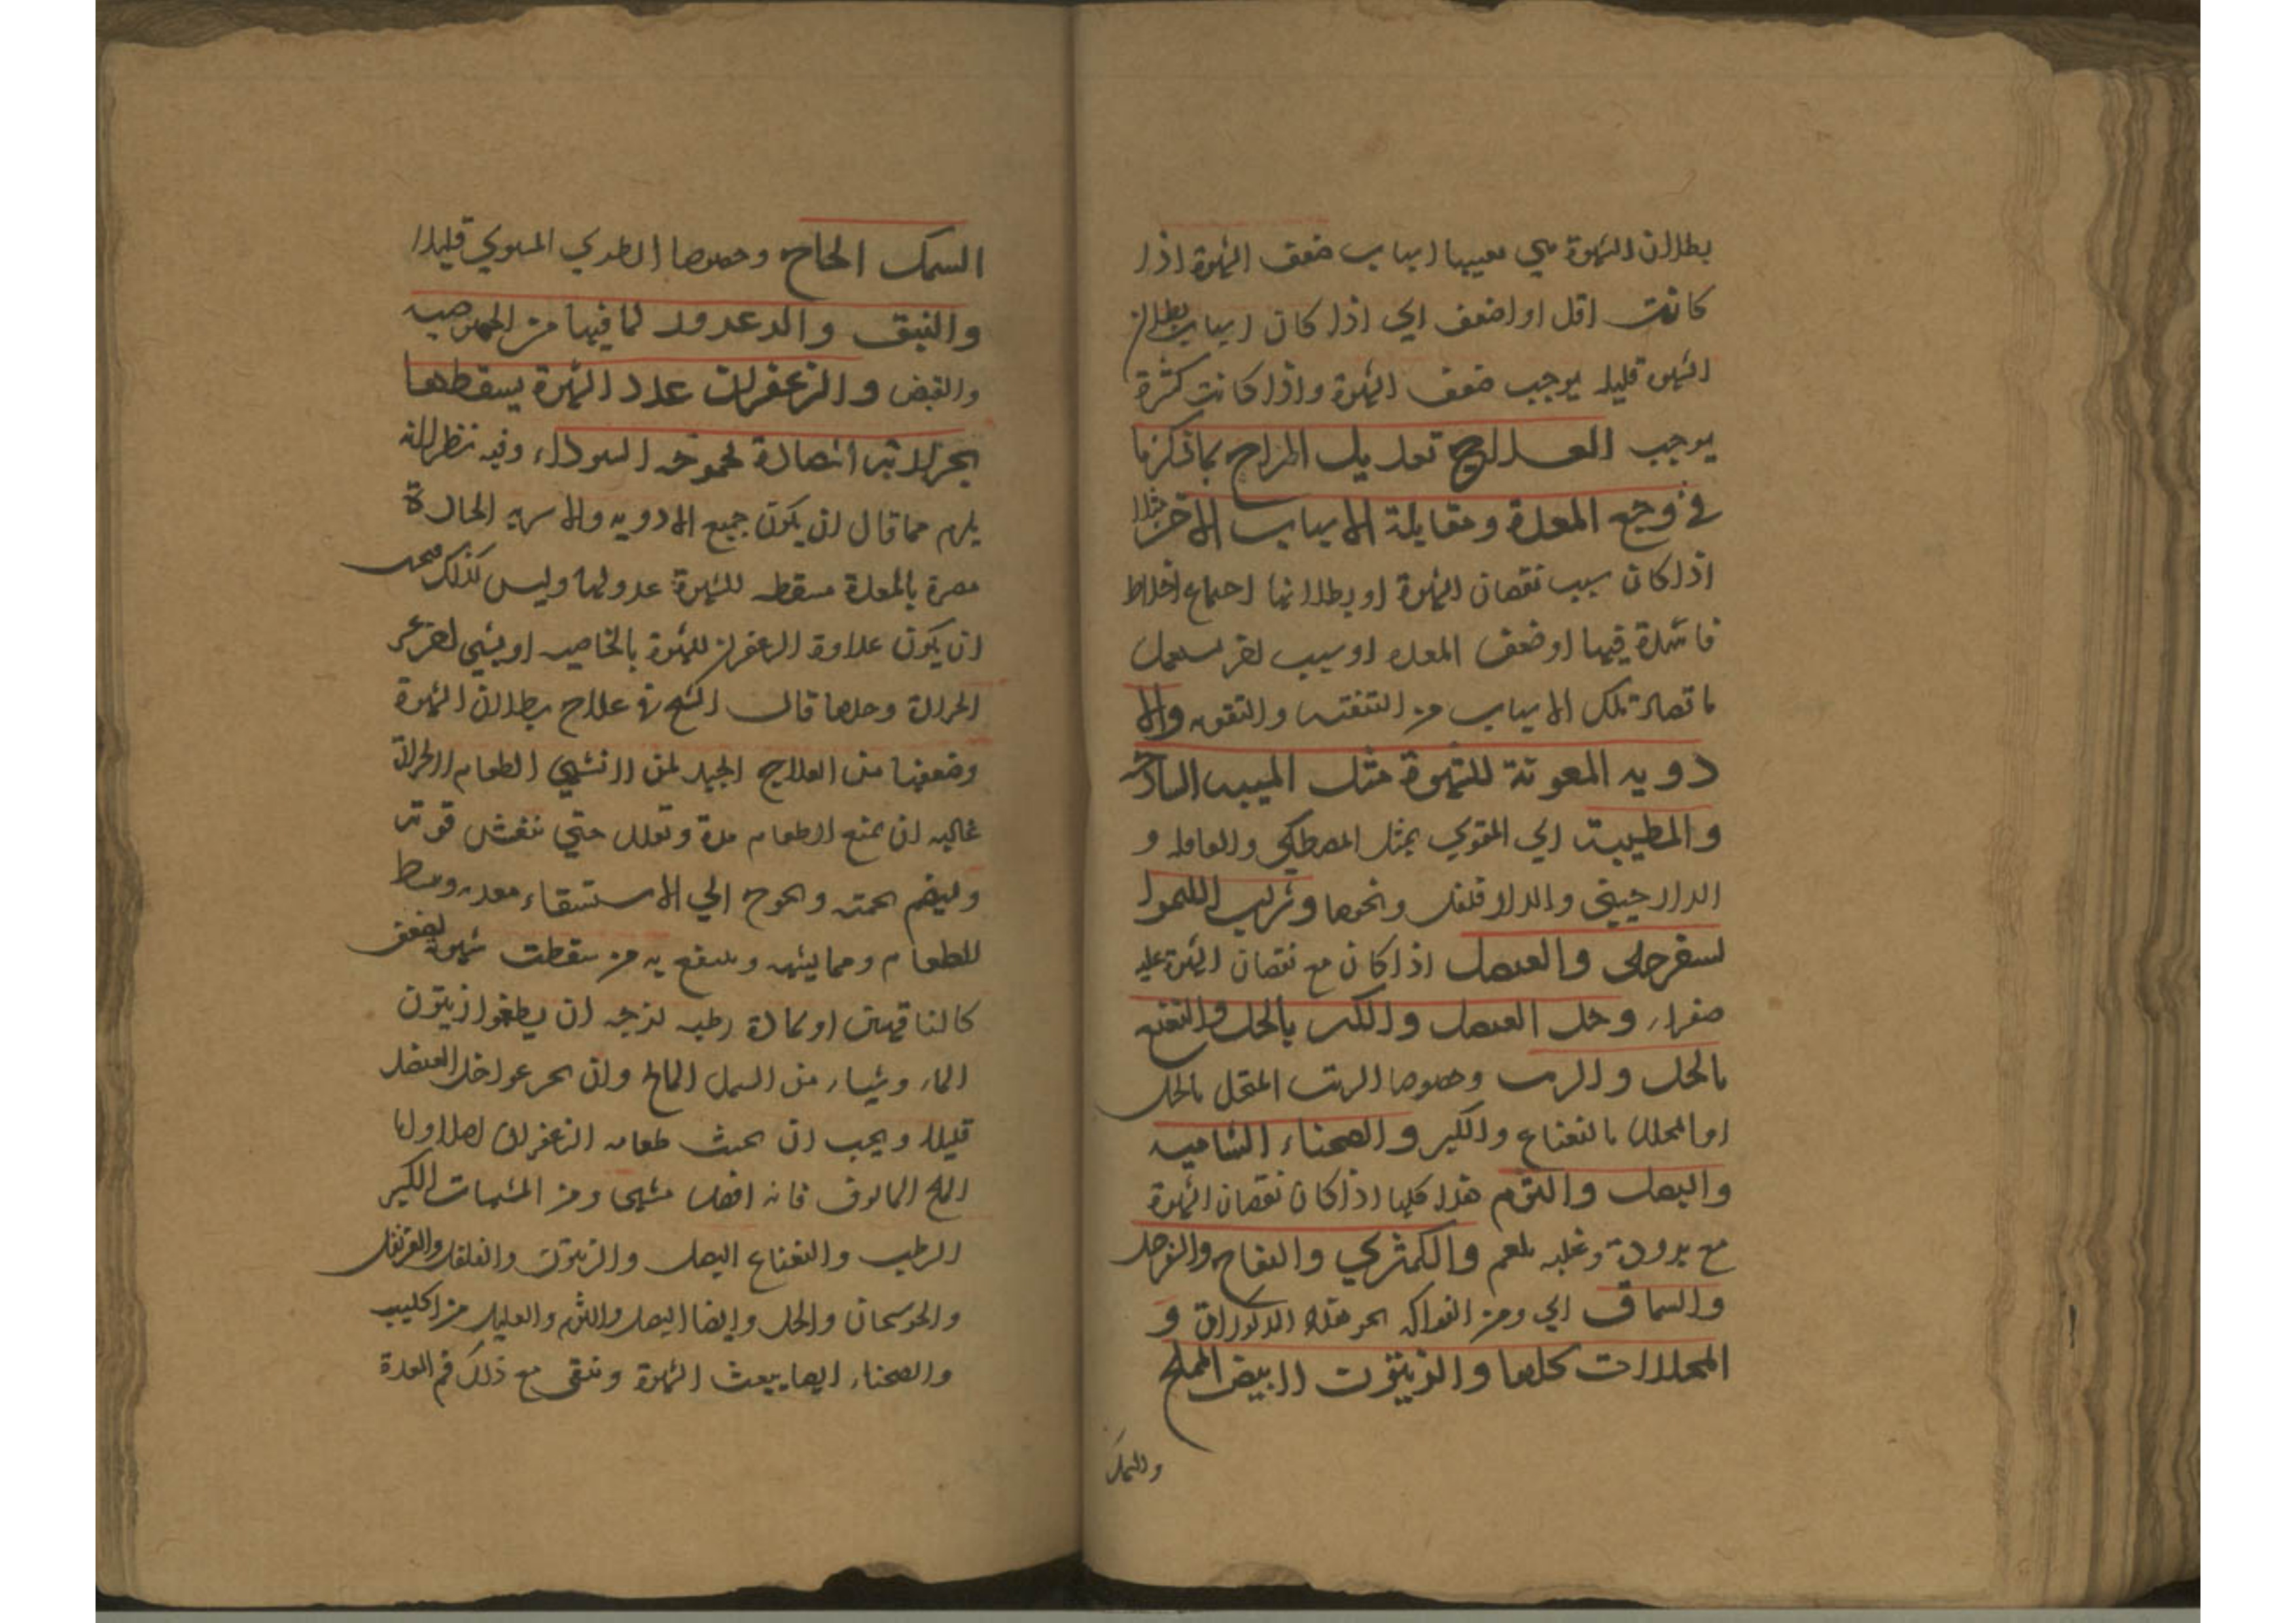 بطلان الشهوة هي بعينها اسباب ضعف الشهوة اذا
كانت اقل او اضعف اي اذا كان اسباب بطلان
الشهوة قليلا يوجب ضعف الشهوة واذا كانت كثرة
يوجب العلاج تعديل المزاج بما ذكرنا
في وجع المعدة ومقابلة الاسباب الاخر مثلا
اذا كان سبب نقصان الشهوة او بطلانها اجتماع اخلاط
فاسدة فيها او ضعف المعده او سبب اخر
تلك الاسباب من التنقيه والتقويه والا
دويه المعونة للشهوة مثل الميبه الساذجه
والمطيبة اي المقوي بمثل المصطكي و
الدارجيني والدارفلفل ونحوها وشراب الليمو ا
لسفرجلي والعنصل اذا كان مع نقصان الشهوة غلبه
صفراء وخل العنصل والكبر بالخل والنعنع
بالخل والزيت وخصوصا الزيت بالخل
بالنعناع والكبر والصحناء الشاميه
والبصل والثوم هذا كلها اذا كان نقصان الشهوة
مع برودة وغلبه بلغم والكمثري والتفاح والسفرجل
والسماق اي ومن الفواكه هذه و
المخللات كلها والزيتون الابيض المملح
والسمك
السمك المالح وخصوصا الطري المشوي قليلا
والنبق والزعرور لما فيها من
والقبض والزعفران عدد الشهوة يسقطها
السوداء وفيه نظر لانه
يلزم مما قال ان يكون جميع الادويه والاشربه الحارة
مضرة بالمعدة مسقطه للشهوة عدولها وليس كذلك
ان يكون عداوة الزعفران للشهوة بالخاصيه او بشي اخر غير
الحرارة وحدها قال الشيخ في علاج بطلان الشهوة
وضعفها من العلاج الجيد لمن لا تشتهي الطعام لحرارة
غالبه ان يمنع الطعام مدة وتعلل حتي تنعش قوته
ويهضم ويحوج الي الاستنقاء معدته وبنشط
للطعام ومما يشهيه وينتفع به من سقطت شهوته لضعف
كالناقهين او لمادة رطبه لزجه ان يطعموا زيتون
الماء وشياء من السمك المالح وان يجرعوا خل العنصل
قليلا ويجب ان يجنب طعامه الزعفران اصلا
الملح المالوف فانه افضل مشهي ومن المشهيات الكبر
الرطب والنعناع البصل والزيتون والفلفل والقرنفل
والخل وايضا البصل والثوم والقليل من
والصحناء ايضا يبعث الشهوة وتنقي مع ذلك فم المعدة